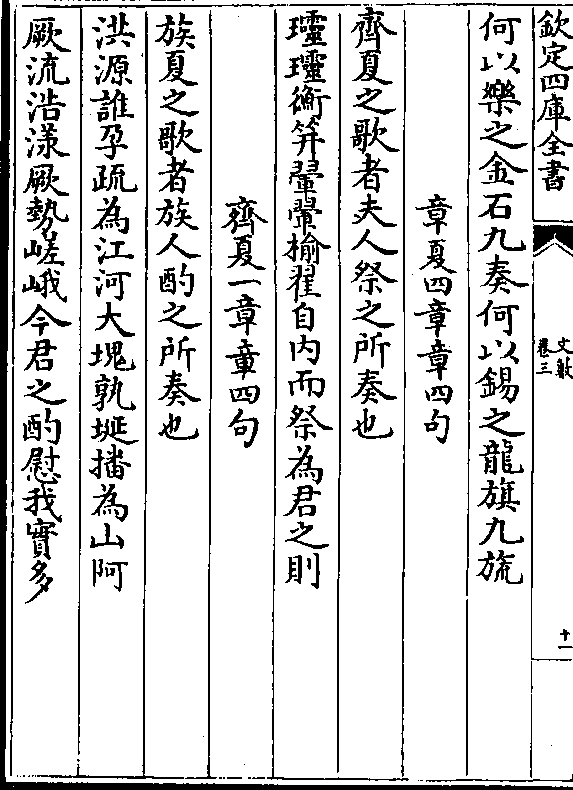 欽定四庫全書
文藪
卷三
十一
何以樂之金石九奏何以錫之龍旗九旒
章夏四章章四句
齊夏之歌者夫人祭之所奏也
㻏㻏衡笄翬翬揄翟自内而祭為君之則
齊夏一章章四句
族夏之歌者族人酌之所奏也
洪源誰孕疏為江河大塊孰埏播為山阿
厥流浩漾厥勢嵯峨今君之酌慰我實多